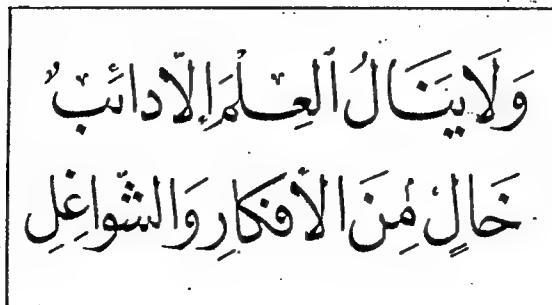 وَلَا يَنَالُ ٱلعِلْمَ اِلاّ دائبٌ
خَالٍ مِنَ الأفكارِ وَالشّواغِلِ